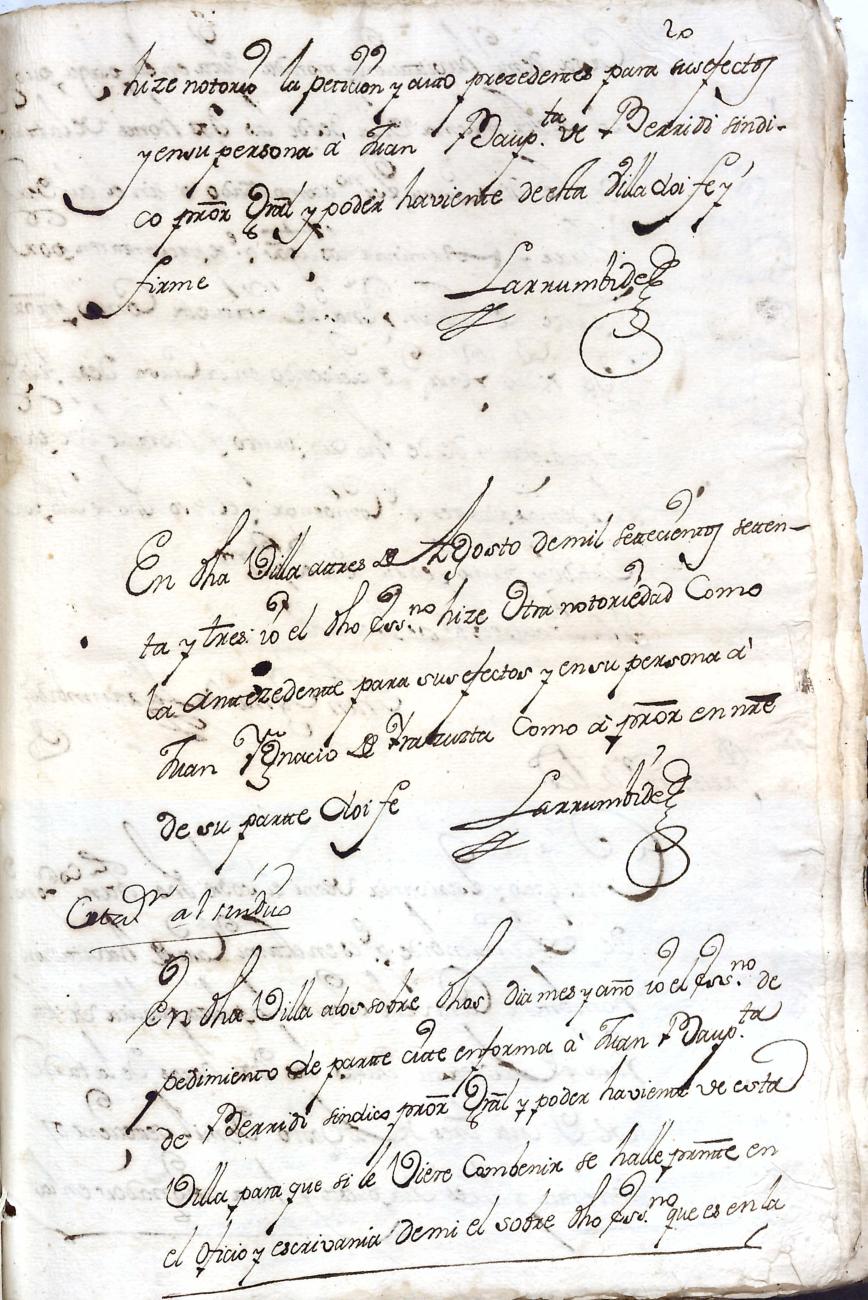 hize notorio la petición y auto prezedentes para sus efectos
y en su persona à Juan Baup.ta de Berridi sindi-
co pror Gral y poder haviente de esta Villa doi fe y
firme Larrumbide
En dha Villa a tres de Agosto de mil settecientos setten-
ta y tres: io el dho Ess.no hize Otra notoriedad Como
la Antezedente para sus efectos y en su persona a
Juan Ygnacio de Yrazuzta Como à pror en nre
de su partte doi fe Larrumbide
Citaz.on al sindico
En dha Villa a los sobre dhos dia mes y año io el Ess.no de
pedimiento de partte cite en forma à Juan Baup.ta
de Berridi sindico pror Gral y poder haviente de esta
Villa para que si le Viere Combenir se halle prnte en
el Oficio y escrivania de mi el sobre dho Ess.no que es en la